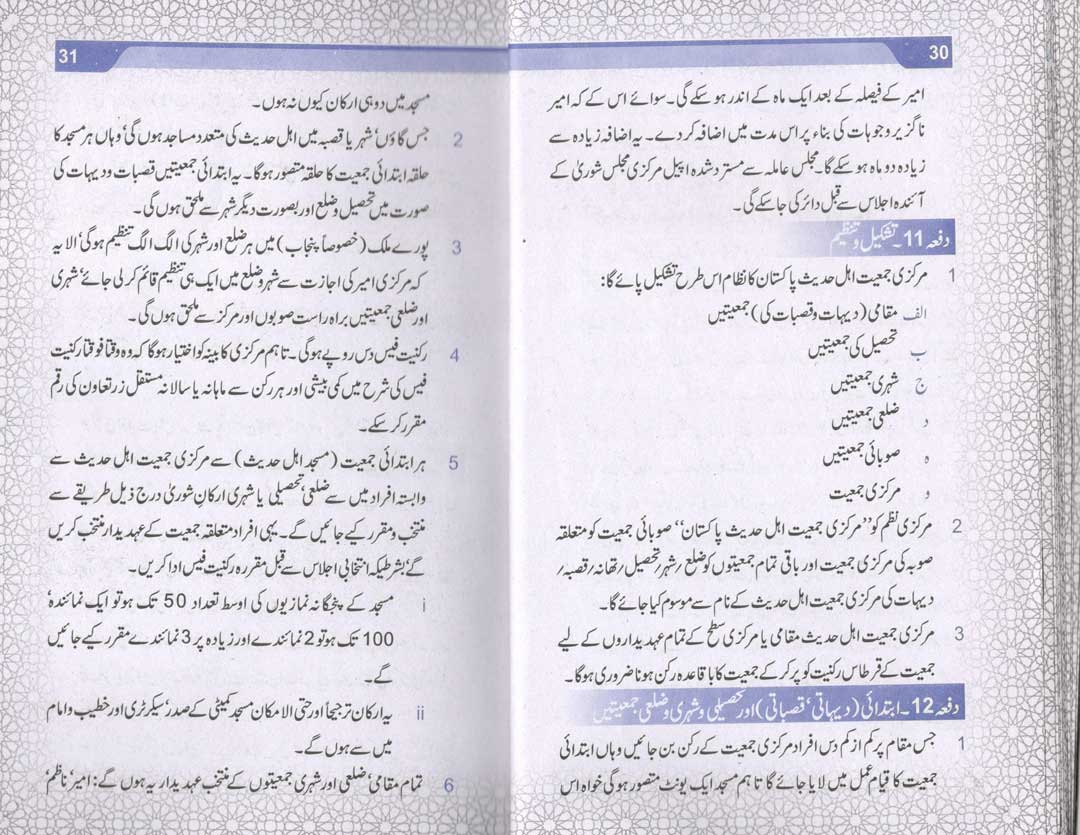 30
امیر کے فیصلہ کے بعد ایک ماہ کے اندر ہو سکے گی۔ سوائے اس کے کہ امیر
ناگزیر وجوہات کی بناء پر اس مدت میں اضافہ کر دے۔ یہ اضافہ زیادہ سے
زیادہ دو ماہ ہو سکے گا۔ مجلس عاملہ سے مسترد شدہ اپیل مرکزی مجلس شوریٰ کے
آئندہ اجلاس سے قبل دائر کی جا سکے گی۔
دفعہ 11۔ تشکیل و تنظیم
1 مرکزی جمعیت اہل حدیث پاکستان کا نظام اس طرح تشکیل پائے گا:
الف مقامی (دیہات و قصبات کی) جمعیتیں
ب تحصیل کی جمعیتیں
ج شہری جمعیتیں
د ضلعی جمعیتیں
ہ صوبائی جمعیتیں
و مرکزی جمعیت
2 مرکزی نظم کو ’’مرکزی جمعیت اہل حدیث پاکستان‘‘ صوبائی جمعیت کو متعلقہ
صوبہ کی مرکزی جمعیت اور باقی تمام جمعیتوں کو ضلع؍ شہر؍ تحصیل؍ تھانہ؍ قصبہ؍
دیہات کی مرکزی جمعیت اہل حدیث کے نام سے موسوم کیا جائے گا۔
3 مرکزی جمعیت اہل حدیث مقامی یا مرکزی سطح کے تمام عہدیداروں کے لیے
جمعیت کے قرطاس رکنیت کو پر کر کے جمعیت کا باقاعدہ رکن ہونا ضروری ہوگا۔
دفعہ 12۔ ابتدائی (دیہاتی‘ قصباتی) اور تحصیلی و شہری و ضلعی جمعیتیں
1 جس مقام پر کم از کم دس افراد مرکزی جمعیت کے رکن بن جائیں وہاں ابتدائی
جمعیت کا قیام عمل میں لایا جائے گا تاہم مسجد ایک یونٹ متصور ہوگی خواہ اس
31
مسجد میں دو ہی ارکان کیوں نہ ہوں۔
2 جس گاؤں‘ شہر یا قصبہ میں اہل حدیث کی متعدد مساجد ہوں گی‘ وہاں ہر مسجد کا
حلقہ ابتدائی جمعیت کا حلقہ متصور ہوگا۔ یہ ابتدائی جمعیتیں قصبات و دیہات کی
صورت میں تحصیل و ضلع اور بصورت دیگر شہر سے ملحق ہوں گی۔
3 پورے ملک (خصوصاً پنجاب) میں ہر ضلع اور شہر کی الگ الگ تنظیم ہوگی‘ الا یہ
کہ مرکزی امیر کی اجازت سے شہر و ضلع میں ایک ہی تنظیم قائم کر لی جائے‘ شہری
اور ضلعی جمعیتیں براہ راست صوبوں اور مرکز سے ملحق ہوں گی۔
4 رکنیت فیس دس روپے ہوگی۔ تاہم مرکزی کابینہ کو اختیار ہوگا کہ وہ وقتاً فوقتاً رکنیت
فیس کی شرح میں کمی بیشی اور ہر رکن سے ماہانہ یا سالانہ مستقل زر تعاون کی رقم
مقرر کر سکے۔
5 ہر ابتدائی جمعیت (مسجد اہل حدیث) سے مرکزی جمعیت اہل حدیث سے
وابستہ افراد میں سے ضلعی‘ تحصیلی یا شہری ارکان شوریٰ درج ذیل طریقے سے
منتخب و مقرر کیے جائیں گے۔ یہی افراد متعلقہ جمعیت کے عہدیدار منتخب کریں
گے‘ بشرطیکہ انتخابی اجلاس سے قبل مقررہ رکنیت فیس ادا کریں۔
i مسجد کے پنجگانہ نمازیوں کی اوسط تعداد 50 تک ہو تو ایک نمائندہ‘
100 تک ہو تو 2 نمائندے اور زیادہ پر 3 نمائندے مقرر کیے جائیں
گے۔
ii یہ ارکان ترجیحاً اور حتی الامکان مسجد کمیٹی کے صدر‘ سیکرٹری اور خطیب و امام
میں سے ہوں گے۔
6 تمام مقامی‘ ضلعی اور شہری جمعیتوں کے منتخب عہدیدار یہ ہوں گے: امیر‘ ناظم‘